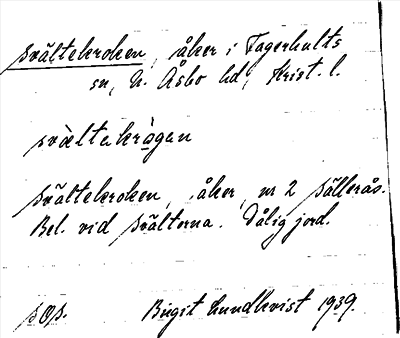 Svältekroken, åker i Fagerhults
sn, N. Åsbo hd, Krist. l.
svàltakràgan
Svältekroken, åker, nr 2 Sällerås.
Bel. vid Svälterna. Dålig jord.
Birgit Lundkvist 1939.